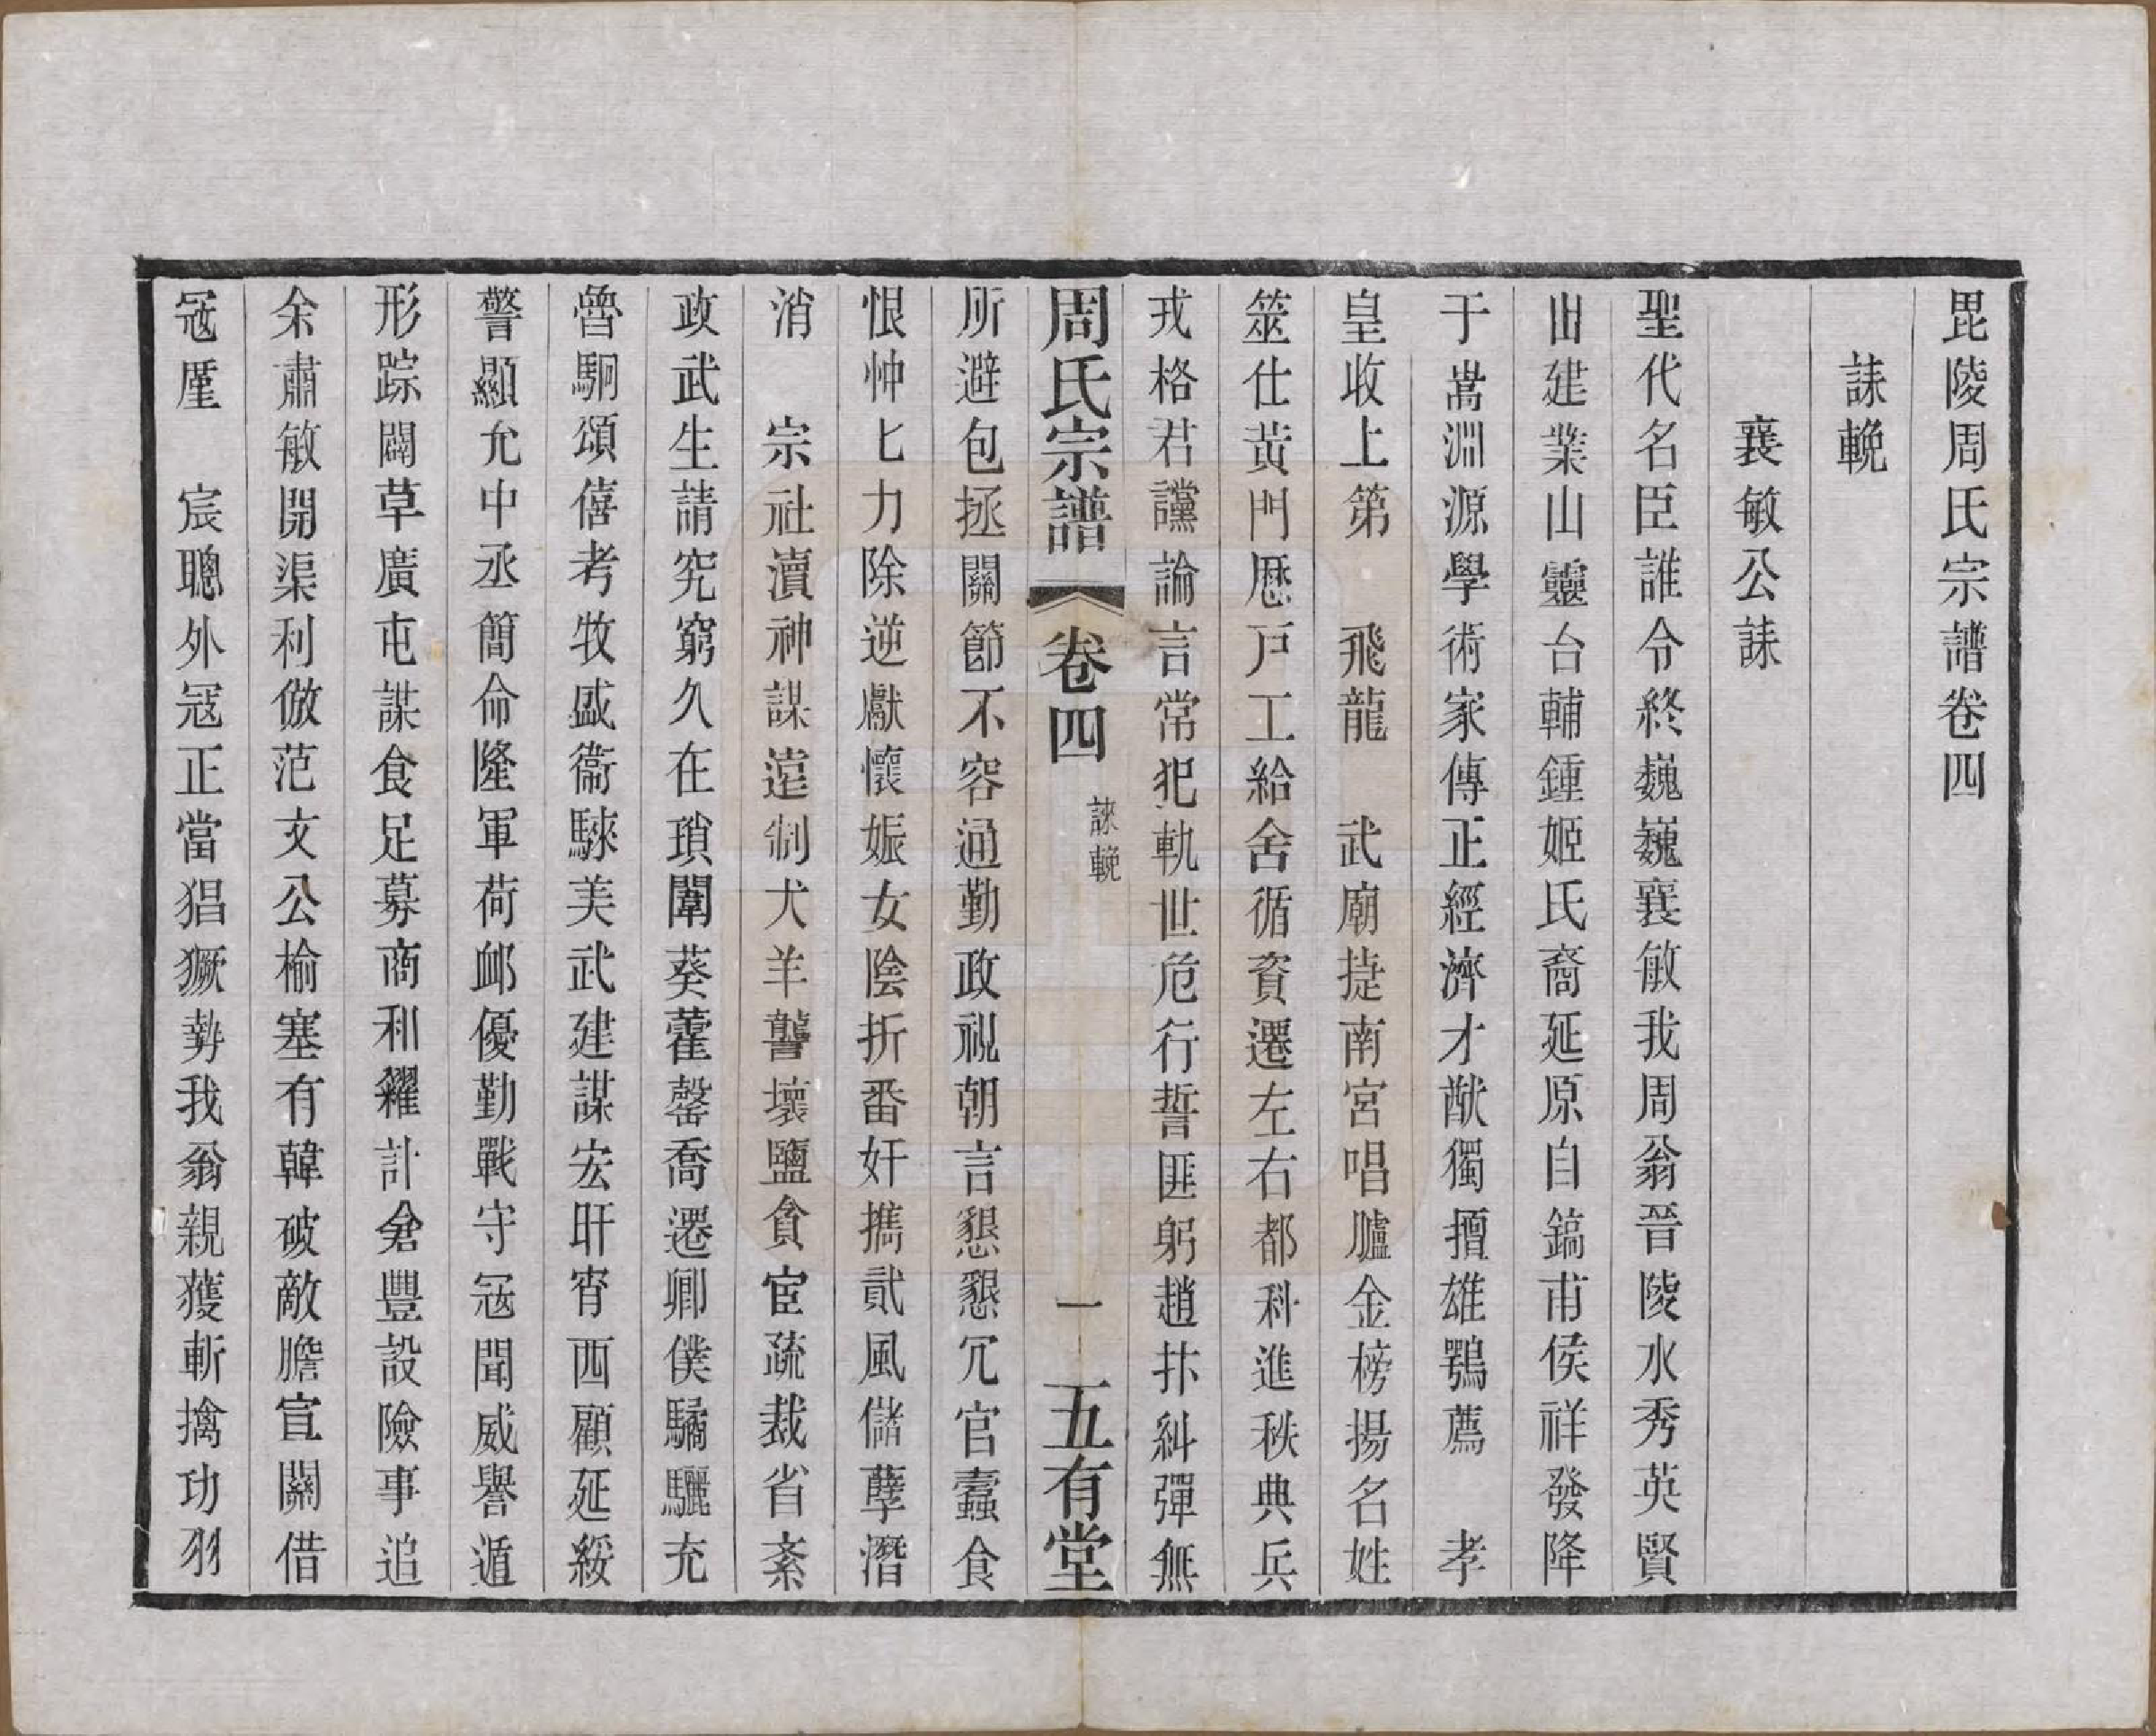 毘陵周氏宗譜卷四
誄輓
襄敏公誄
聖代名臣誰令終巍巍襄敏我周翁晉陵水秀英賢
出建業山靈台輔鍾姬氏裔延原自鎬甫侯祥發降
于嵩淵源學術家傳正經濟才猷獨擅雄鶚薦 孝
皇收上第 飛龍 武廟捷南宮唱臚金榜揚名姓
筮仕黃門歷戶工給舍循資遷左右都科進秩典兵
戎格君讜論言常犯軌世危行誓匪躬趙抃糾彈無
周氏宗譜 卷四 誄輓 一 五有堂
所避包拯關節不容通勤政視朝言懇懇冗官蠹食
恨忡忡七力除逆獻懷娠女陰折番奸擕貳風儲孽潛
消 宗社瀆神謀遠制犬羊讋壞鹽貪宦疏裁省紊
政武生請究窮久在瑣闈葵藿罄喬遷卿僕驈驪充
魯駉頌僖考牧盛衞騋美武建謀宏旰宵西顧延綏
警顯允中丞簡命隆軍荷䘏優勤戰守冦聞威譽遁
形踪闢草廣屯謀食足募商利糴計倉豐設險事追
余肅敏開渠利倣范文公榆塞有韓破敵膽宣關借
冦厪 宸聰外冦正當猖獗勢我翁親獲斬擒功羽